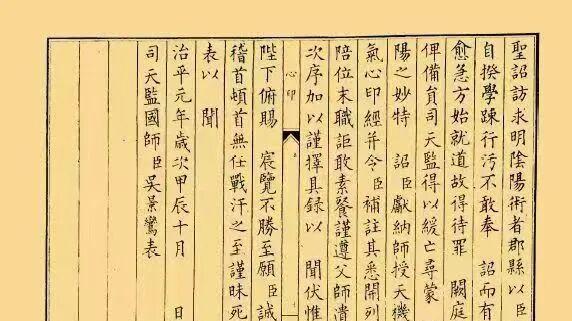 聖詔訪求明陰陽術者郡縣以臣
自揆學踈行污不敢奉 詔而有
愈急方始就道故得待罪 闕庭
俾備員司天監得以緩亡尋蒙
陽之妙特 詔臣獻納師授天機
氣心印經并令臣補註其悉開列
陪位末職詎敢素餐謹遵父師遺
次序加以謹擇具録以 聞伏惟
心印
陛下俯賜 宸覽不勝至願臣誠
稽首頓首無任戰汗之至謹昧死
表以 聞
治平元年歲次甲辰十月 日
司天監國師臣吳景鸞表